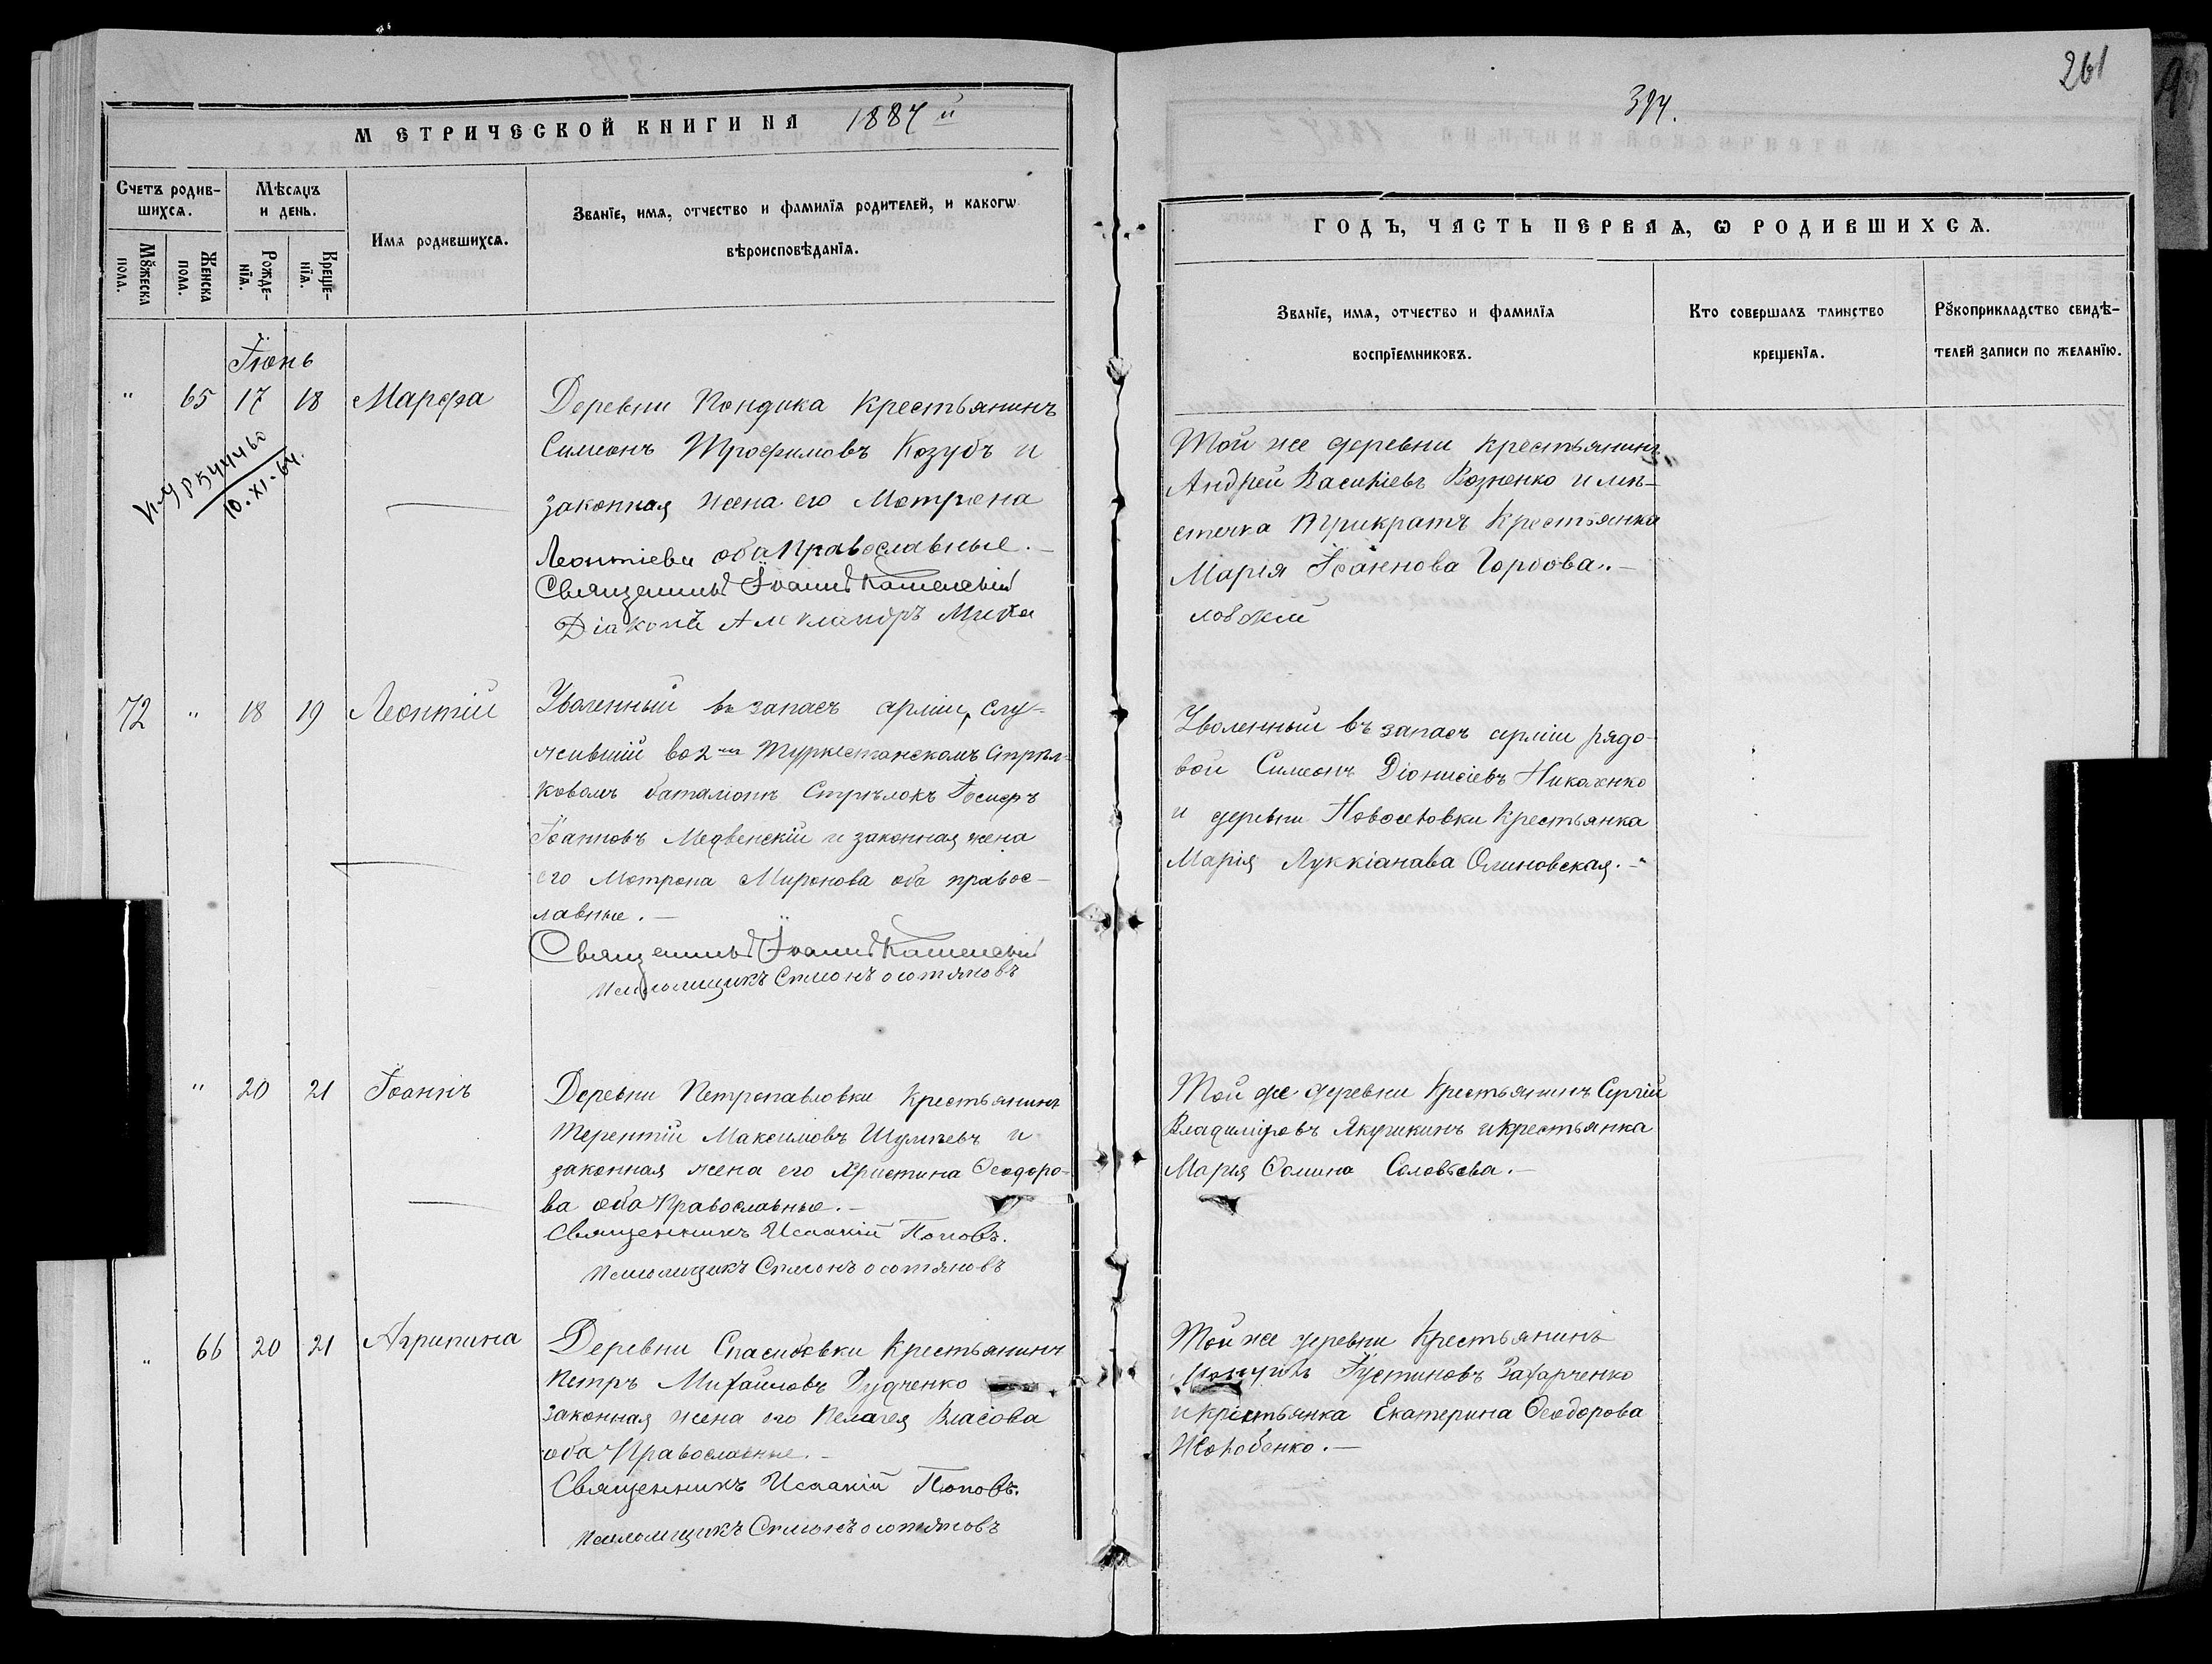 МЕТРИЧЕСКОЙ КНИГИ НА 1887 й
Счетъ родив-
шихся.
Мѣсяцъ
и день.
Имя родившихся.
Званїе, имя, отчество и фамилїя родителей, и какогѡ
вѣроисповѣданїя.
Мꙋжеска
пола.
Женска
пола.
Рожде-
нїя.
Креще-
нїя.
Іюнь
" 65 17 18 Марфа
Деревни Кондика Крестьянинъ
Симеонъ Трофимовъ Козубъ и
законная жена его Мотрона
Леонтіева оба Православные.—
Священникъ Іоаннъ
Діаконъ Александръ Миха
10.XI.64.
72 " 18 19 Леонтій
Уволенный въ запасъ арміи, слу-
жившій во 2мъ Туркестанскомъ Стрѣл-
ковомъ баталіонѣ Стрѣлокъ Іосифъ
Іоанновъ Медвенскій и законная жена
его Мотрона Миронова оба правос-
лавные.—
Священникъ Іоаннъ
Псаломщикъ Симонъ
" 20 21 Іоаннъ
Деревни Петропавловки Крестьянинъ
Терентій Максимовъ Шулпевъ и
законная жена его Христина Ѳеодоро-
ва оба Православные.—
Священникъ Исаакій Поповъ.
Псаломщикъ Симонъ
" 66 20 21 Агрипина
Деревни Спасибовки Крестьянинъ
Петръ Михайловъ Рудченко
законная жена его Пелагея Власова
оба Православные.—
Священникъ Исаакій Поповъ.
Псаломщикъ Симонъ
261
394.
ГОДЪ, ЧАСТЬ ПЕРВАЯ, Ѡ РОДИВШИХСЯ.
Званїе, имя, отчество и фамилїя
воспрїемниковъ.
Кто совершалъ таинство
крещенїя.
Рꙋкоприкладство свидѣ-
телей записи по желанїю.
Той же деревни крестьянинъ
Андрей Василіевъ Возненко и мѣ-
стечка Трикратъ Крестьянка
Марія Іоаннова Горбова.—
ловскій
Уволенный въ запасъ арміи рядо-
вой Симеонъ Діонисіевъ Николенко
и деревни Новоселовки Крестьянка
Марія Луккіанова Олиновская.—
Той же деревни Крестьянинъ Сергій
Владиміровъ Якушкинъ и крестьянка
Марія Ѳомина Соловьева.—
Той же деревни Крестьянинъ
Іустиновъ Захарченко
и крестьянка Екатерина Ѳеодорова
Жолобенко.—